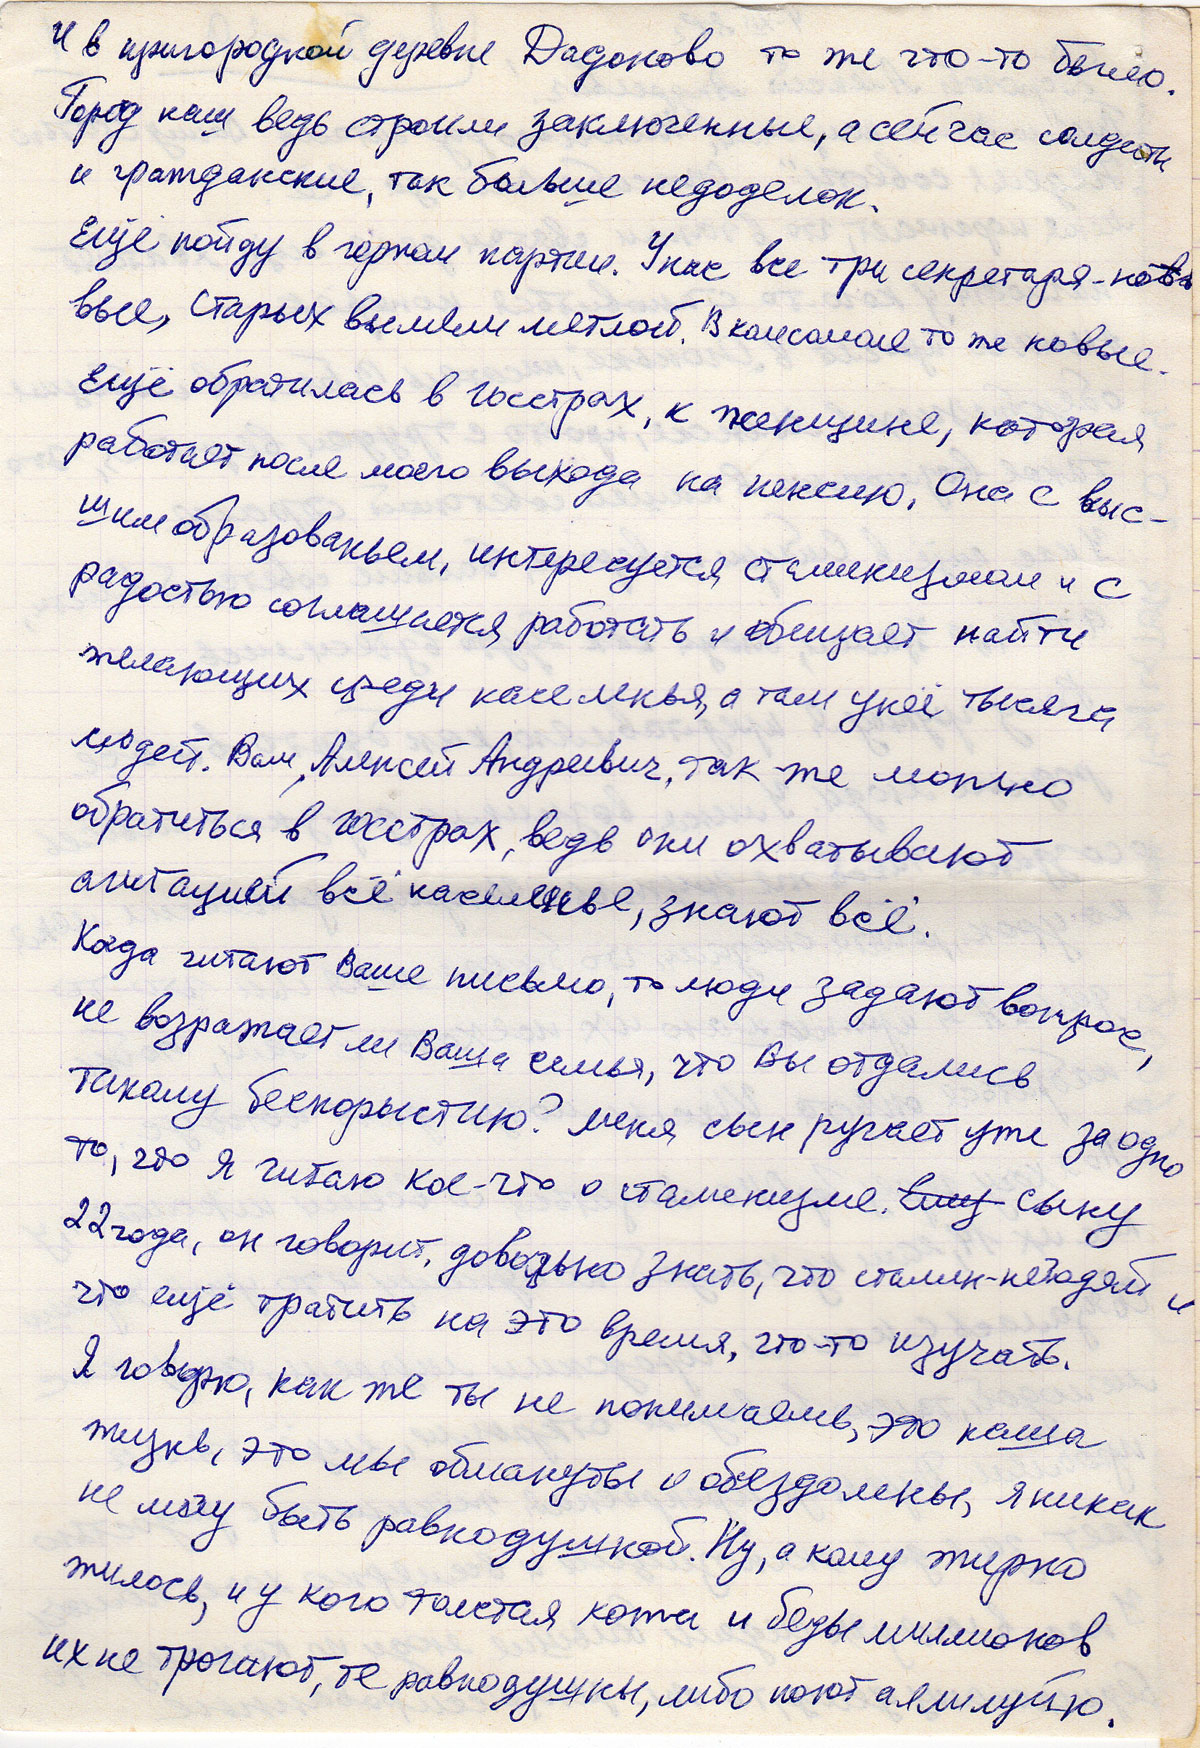 И в пригородкой деревне Дадоново то же что-то было.
Город наш ведь строили заключенные, а сейчас солдаты
и гражданские, так больше недоделок.
Ещё пойду в горком партии. У нас все три секретаря - новы
вые, старых вымели метлой. В комсомоле то же новые.
Ещё обратилась в Госстрах, к женщине, которая
работает после моего выхода на пенсию. Она с выс-
шим образованьем, интересуется сталинизмом и с
радостью соглашается работать и обещает найти
желающих среди населенья, а там у неё тысяча
людей. Вам, Алексей Андреевич, так-же можно
обратиться в Госстрах, ведь они охватывают
агитацией всё населенье, знают всё.
Когда читают Ваше письмо, то люди задают вопрос,
не возражает ли Ваша семья, что Вы отдались
такому бескорыстию? Меня сын ругает уже за одно
то, что я читаю кое-что о сталинизме. ему сыну
22 года, он говорит, довольно знать, что сталин-негодяй и
что ещё тратить на это время, что-то изучать.
Я говорю, как же ты не понимаешь, это наша
жизнь, это мы обмануты и обездолены, я никак
не могу быть равнодушной. Ну, а кому жирно
жилось, и у кого толстая кожа и беды миллионов
их не трогают, те равнодушны, либо поют аллилуйю.